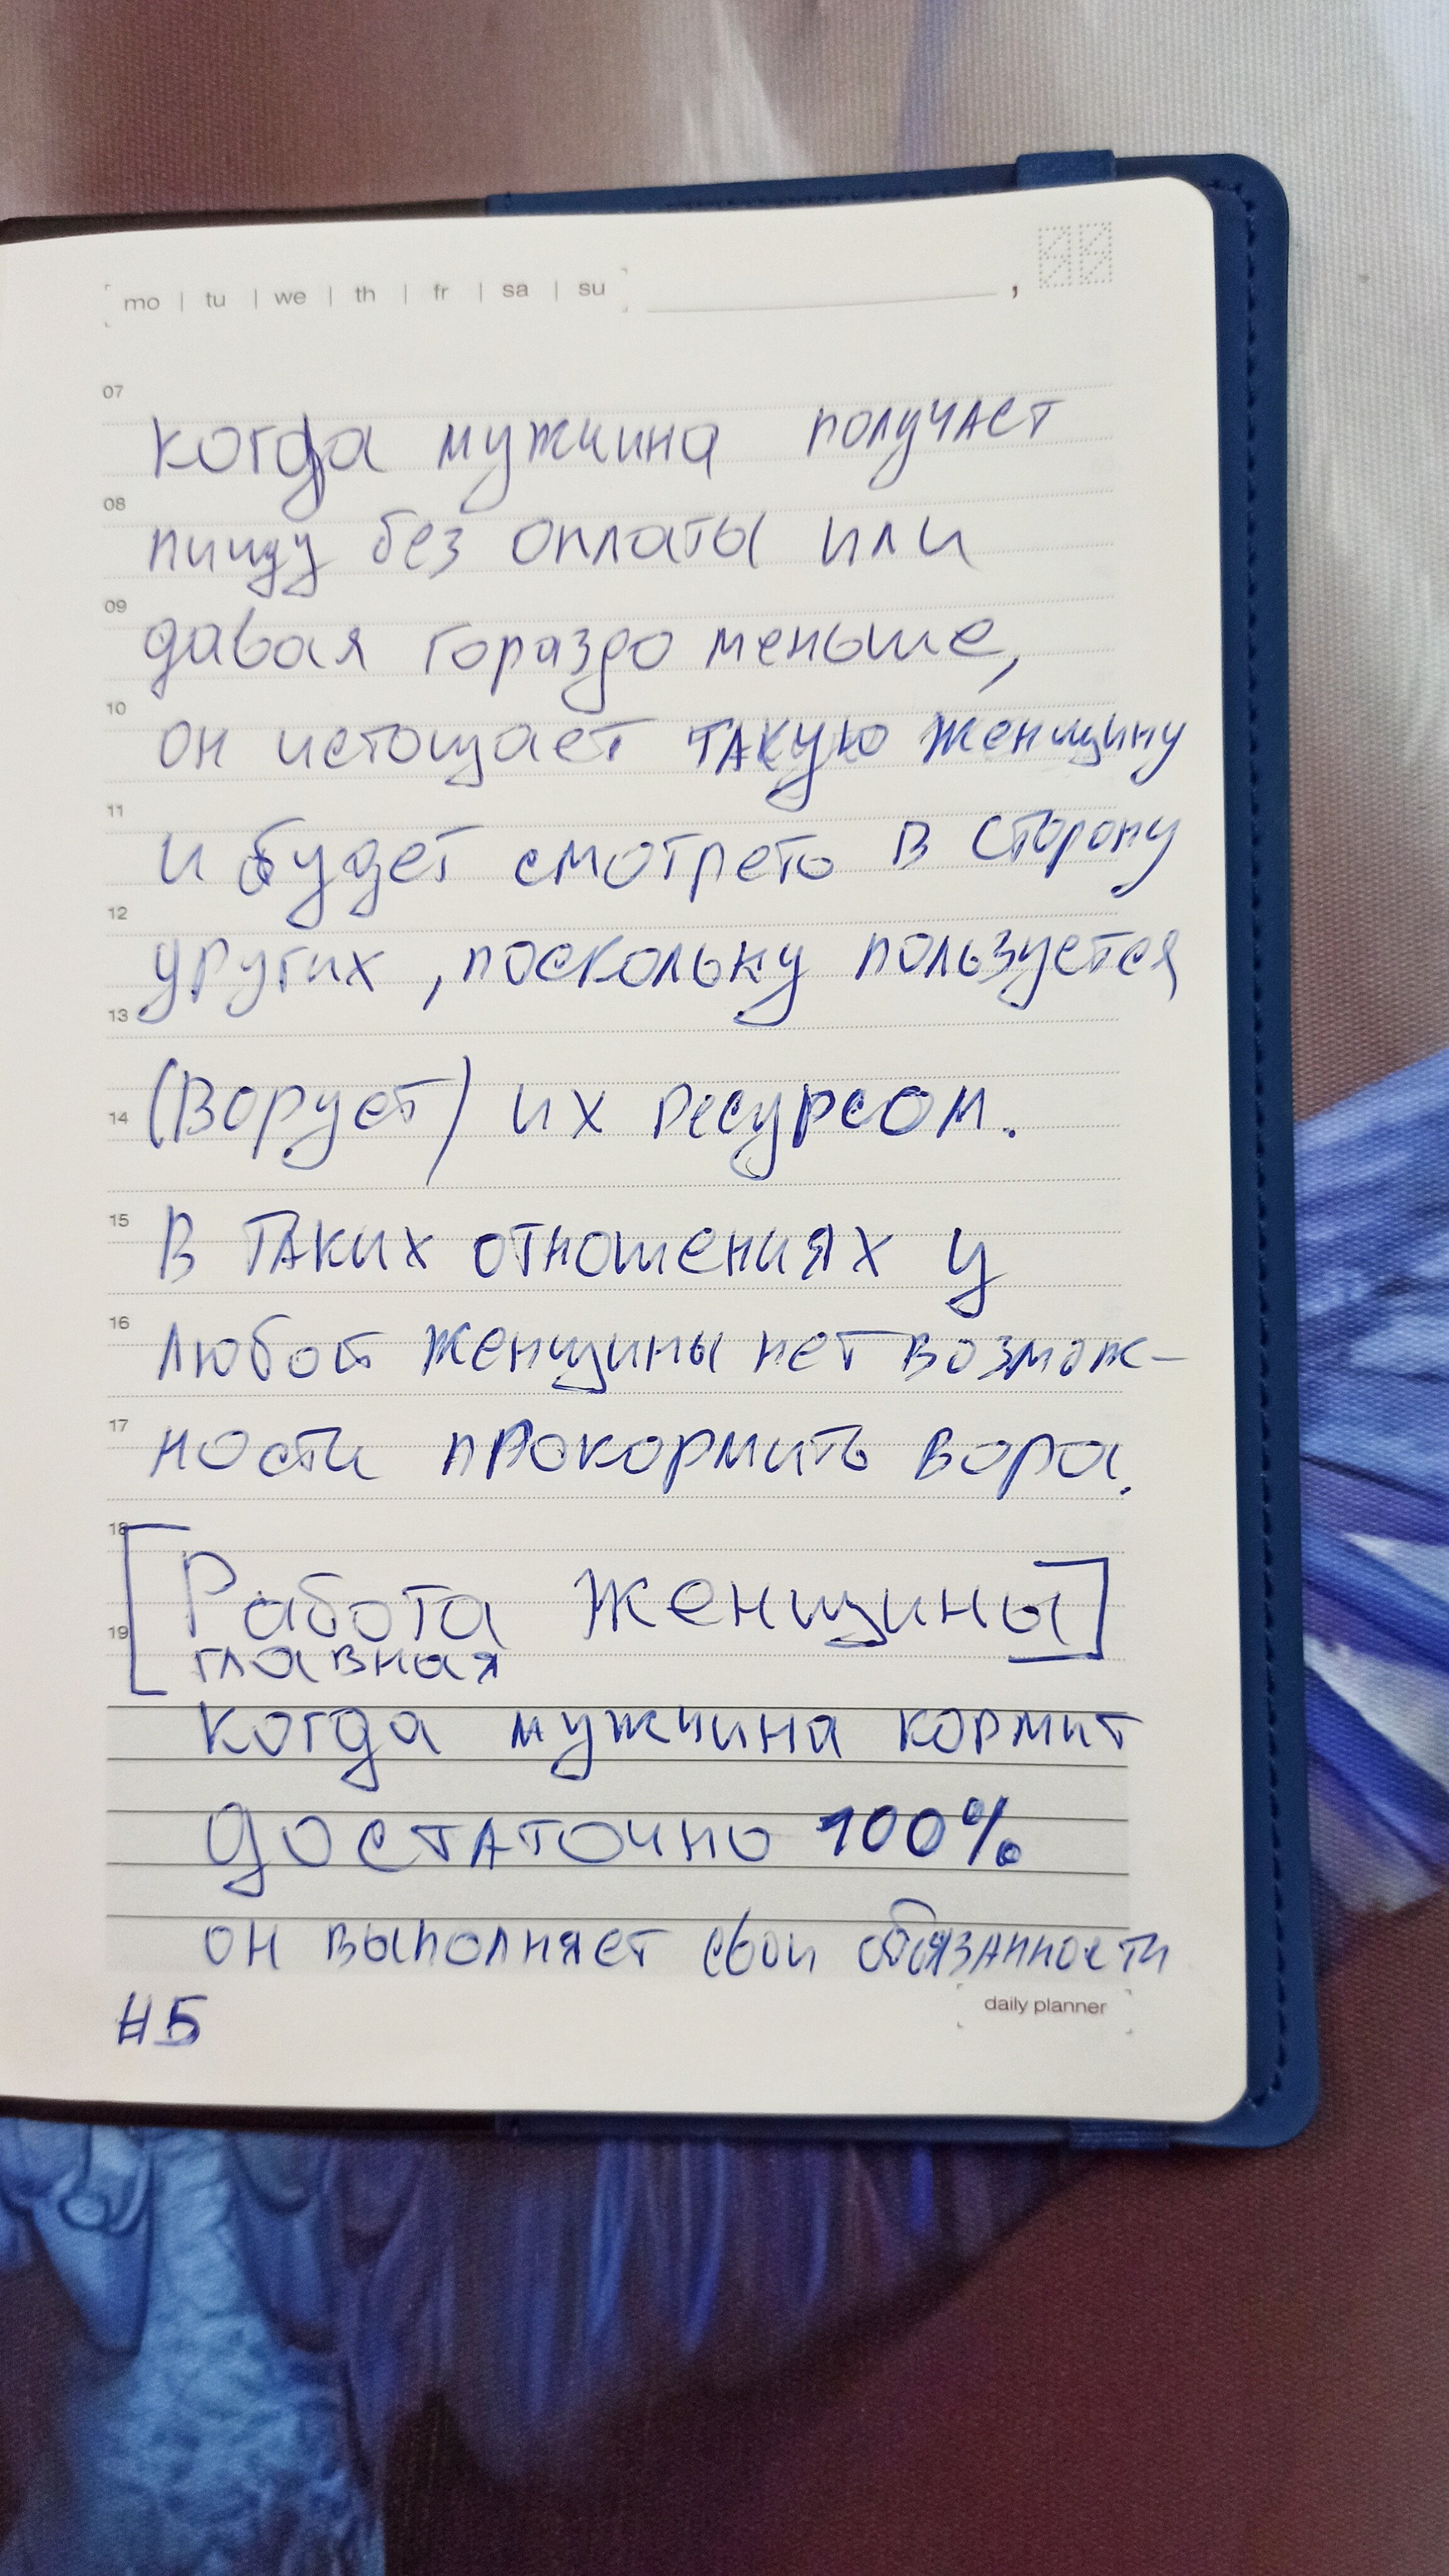 mo | tu | we | th | fr | sa | su ,
07
когда мужчина получает
08
пищу без оплаты или
09
давая гораздо меньше,
10
он истощает такую женщину
11
и будет смотреть в сторону
12
других, поскольку пользуется
13
14 (ворует) их ресурсом.
15 В таких отношениях у
16
любой женщины нет возмож-
17
ности прокормить вора.
18
[Работа женщины]
19
главная
когда мужчина кормит
достаточно 100%
он выполняет свои обязанности
#5
daily planner